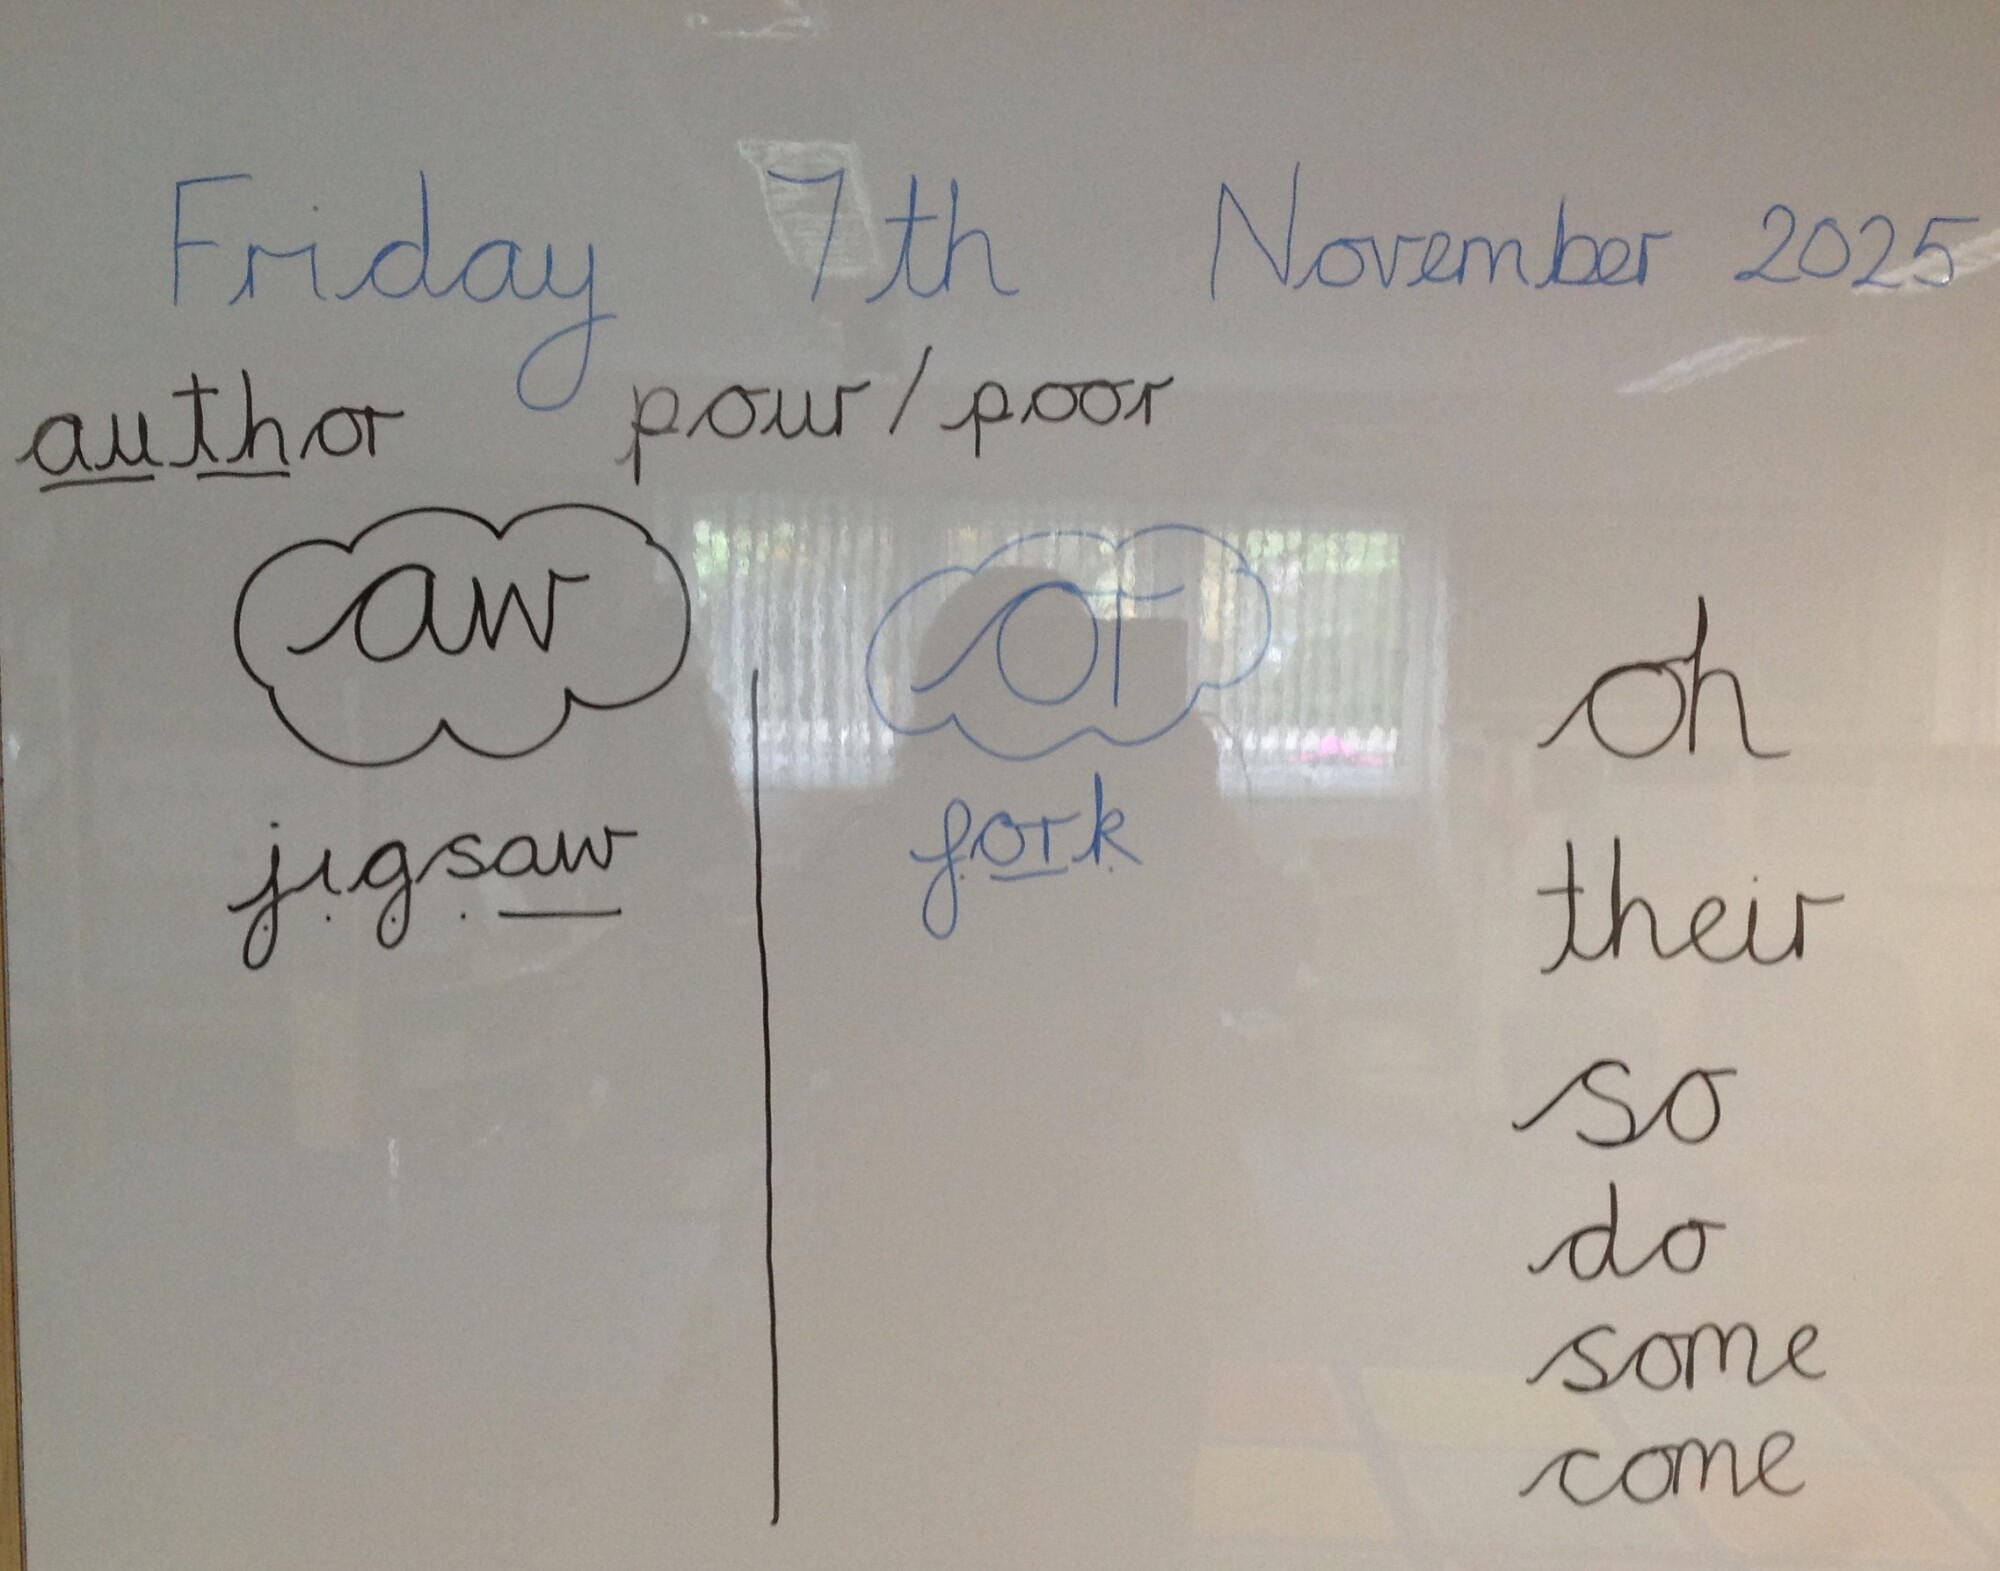 Friday 7th November 2025
author pour/poor
aw or
oh
jigsaw fork
their
so
do
some
come